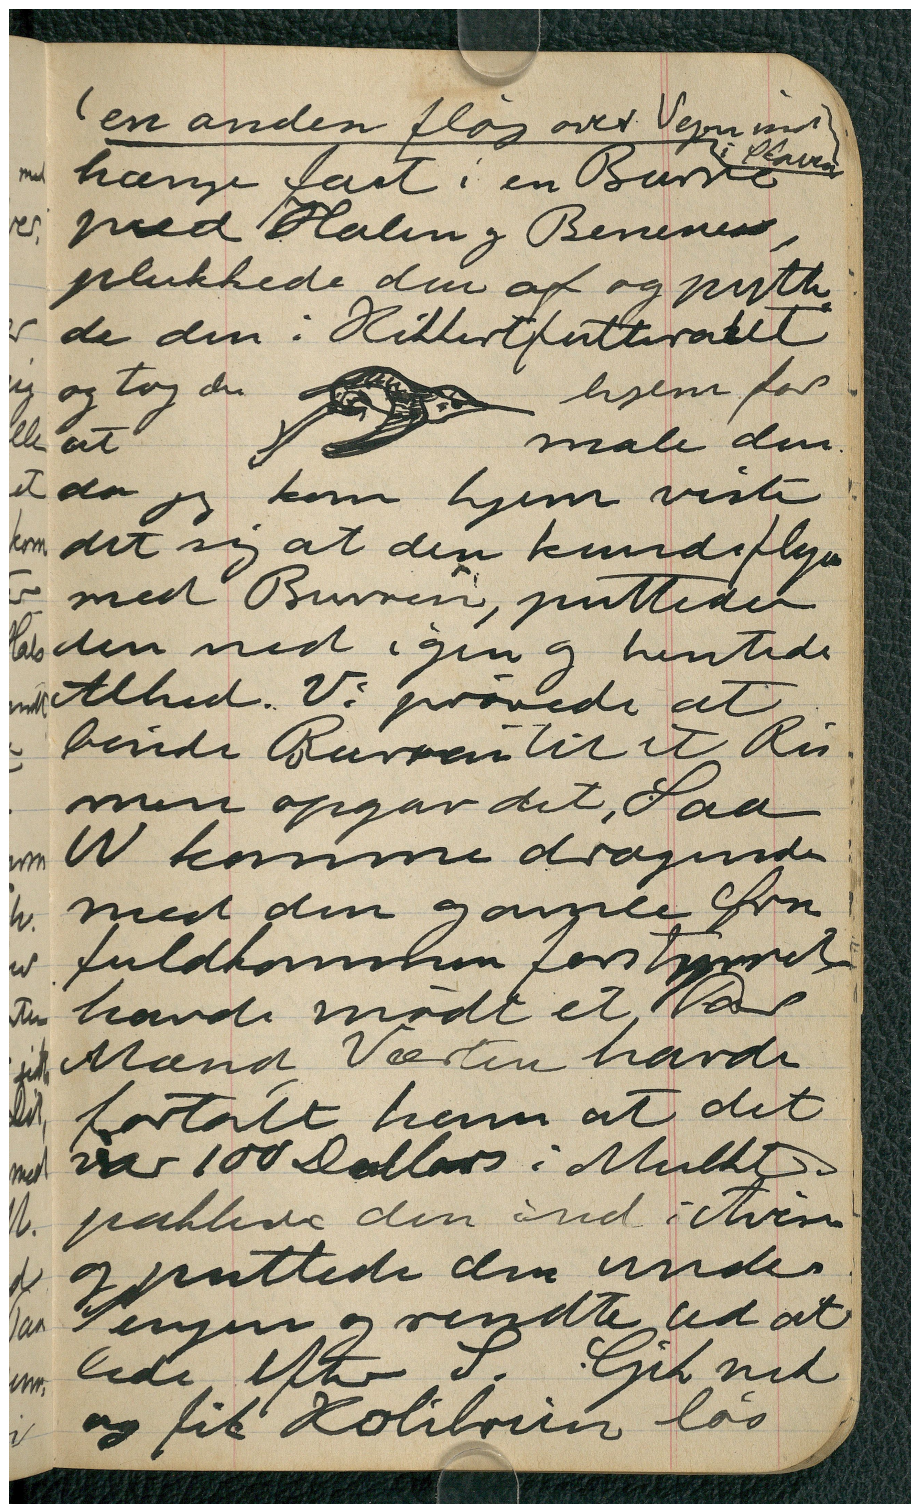 en anden fløj over Vejen ind
i Skoven
hænge fast i en Burre
med Halen og Benene,
plukkede den af og putte
de den i Kikkertfutteralet
og tog den hjem for
at male den.
da jeg kom hjem viste
det sig at den kunde flyve
med Burren, puttede
den ned igen og hentede
Alhed. Vi prövede at
binde Burren til et Ris
men opgav det, Saa
W komme dragende
med den gamle Örn
fuldkommen forstyrret
havde mödt et Par
Mænd Værten havde
fortalt ham at det
var 100 Dollars i Mulkt
pakkede den ind i Avisen
og puttede den under
Sengen og rendte ud at
lede efter S. Gik ned
og fik Kolibrien lös